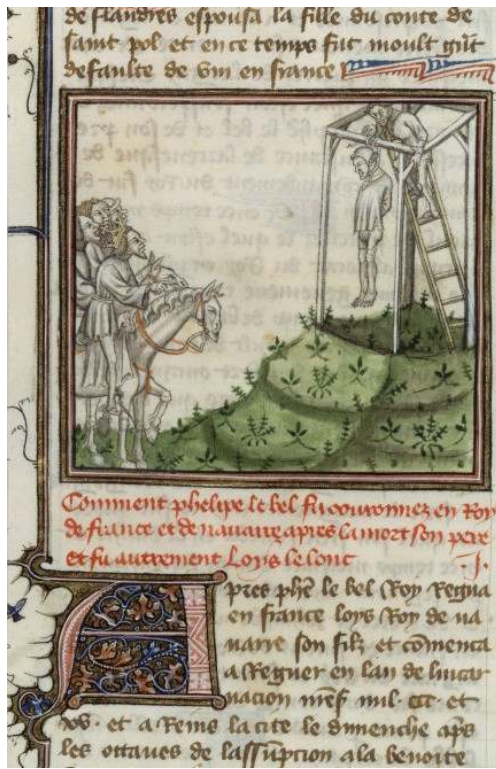 de flandres espousa la fille du conte de
saint pol et en ce temps fut moult gñt
defaulte de vin en france
Comment phelipe le bel fu couronnez en Roy
de france et de navarre apres la mort son pere
et fu autrement Loys le lonc .J.
Apres phẽ le bel Roy Regna
en france loys Roy de na
uarre son filz et cõmenca
a Regner en lan de lincar
nacion mil et
xv. et a Reins la cite le dimenche aps
les ottaues de lassũpcion a la benoite